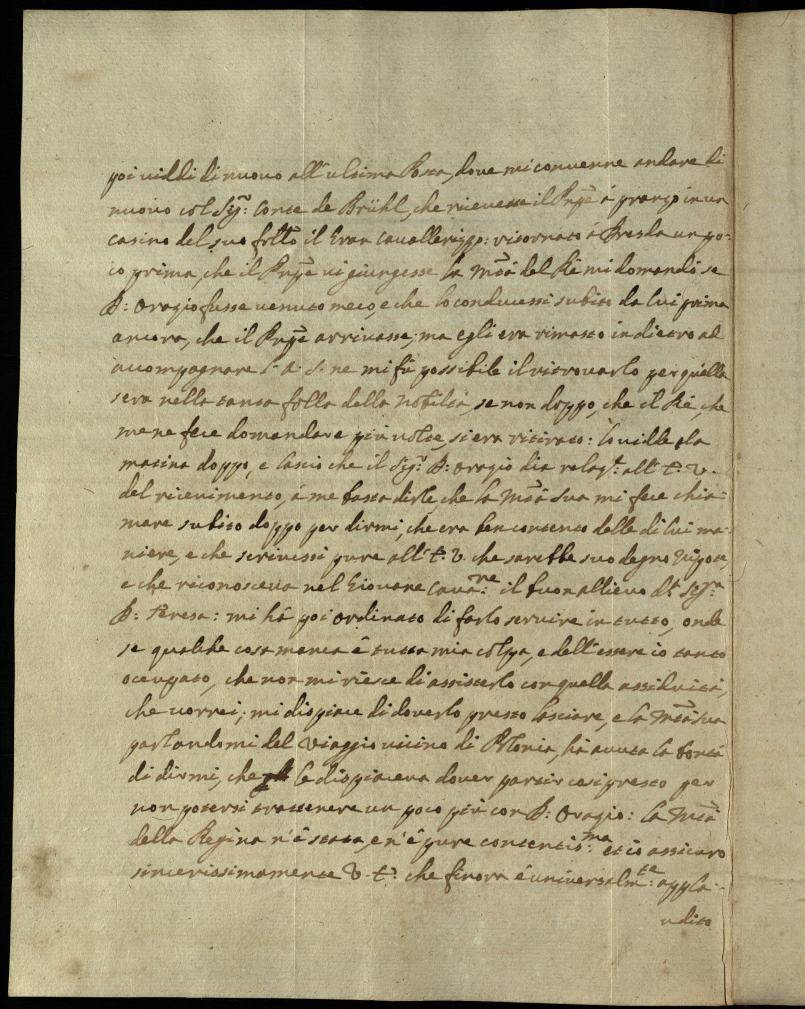 poi viddi di nuovo all'ultima Posta, dove mi convenne andare di
nuovo col Sig.r Conte de Brühl, che ricevette il Prnpe à pranzo in un
casino del suo frllo il Gran Cavallerizzo: ritornato à Dresda un po-
co prima, che il Prnpe vi giungesse la Mtà del Rè mi domandò se
D: Orazio fusse venuto meco, e che lo conducessi subito da lui prima
ancora, che il Prnpe arrivasse; ma egli era rimasto indietro ad
accompagnare S. A. S. ne mi fù possibile il ritrovarlo per quella
sera nella tanta folla della Nobiltà, se non doppo, che il Rè, che
mene fece domandare più volte, si era ritirato: lo vidde la
matina doppo, e lascio che il Sig.r D: Orazio dia relaz.e all' E. V.
del ricevimento, à me basta dirle, che la Mtà Sua mi fece chia-
mare subito doppo per dirmi, che era ben contento delle di lui ma-
niere, e che scrivessi pure all' E. V. che sarebbe suo degno Nipote,
e che riconosceva nel Giovane Cava.re il buon allievo d. Sig.ra
D: Teresa: mi hà poi ordinato di farlo servire in tutto, onde
se qualche cosa manca è tutta mia colpa, e dell'essere io tanto
occupato, che non mi riesce di assisterlo con quella assiduità,
che vorrei; mi dispiace di doverlo presto lasciare, e la Mtà Sua
parlandomi del viaggio vicino di Polonia, hà avuta la bontà
di dirmi, che le dispiaceva dover partir così presto per
non potersi trattenere un poco più con D: Orazio: la Mtà
della Regina n'è stata, e n'è pure contentis.ma et io assicuro
sincerissimamente V. E. che finora è universalm.te appla-
udito